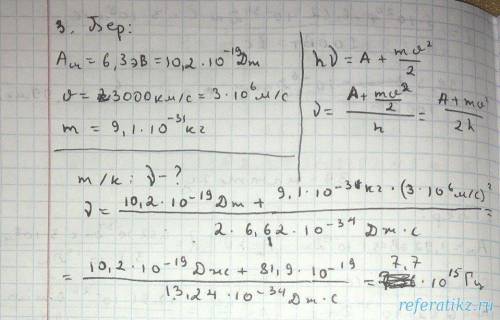 3. Бер:
Aвых = 6,3 эВ = 10,2 · 10⁻¹⁹ Дж
υ = 3000 км/с = 3 · 10⁶ м/с
m = 9,1 · 10⁻³¹ кг
hν = A + mυ²/2
ν = (A + mυ²/2)/h = (A + mυ²)/2h
т/к: ν - ?
ν = (10,2 · 10⁻¹⁹ Дж + 9,1 · 10⁻³¹ кг · (3 · 10⁶ м/с)²)/(2 · 6,62 · 10⁻³⁴ Дж · с) =
= (10,2 · 10⁻¹⁹ Дж + 81,9 · 10⁻¹⁹)/(13,24 · 10⁻³⁴ Дж · с) = 7,7 · 10¹⁵ Гц
referatikz.ru